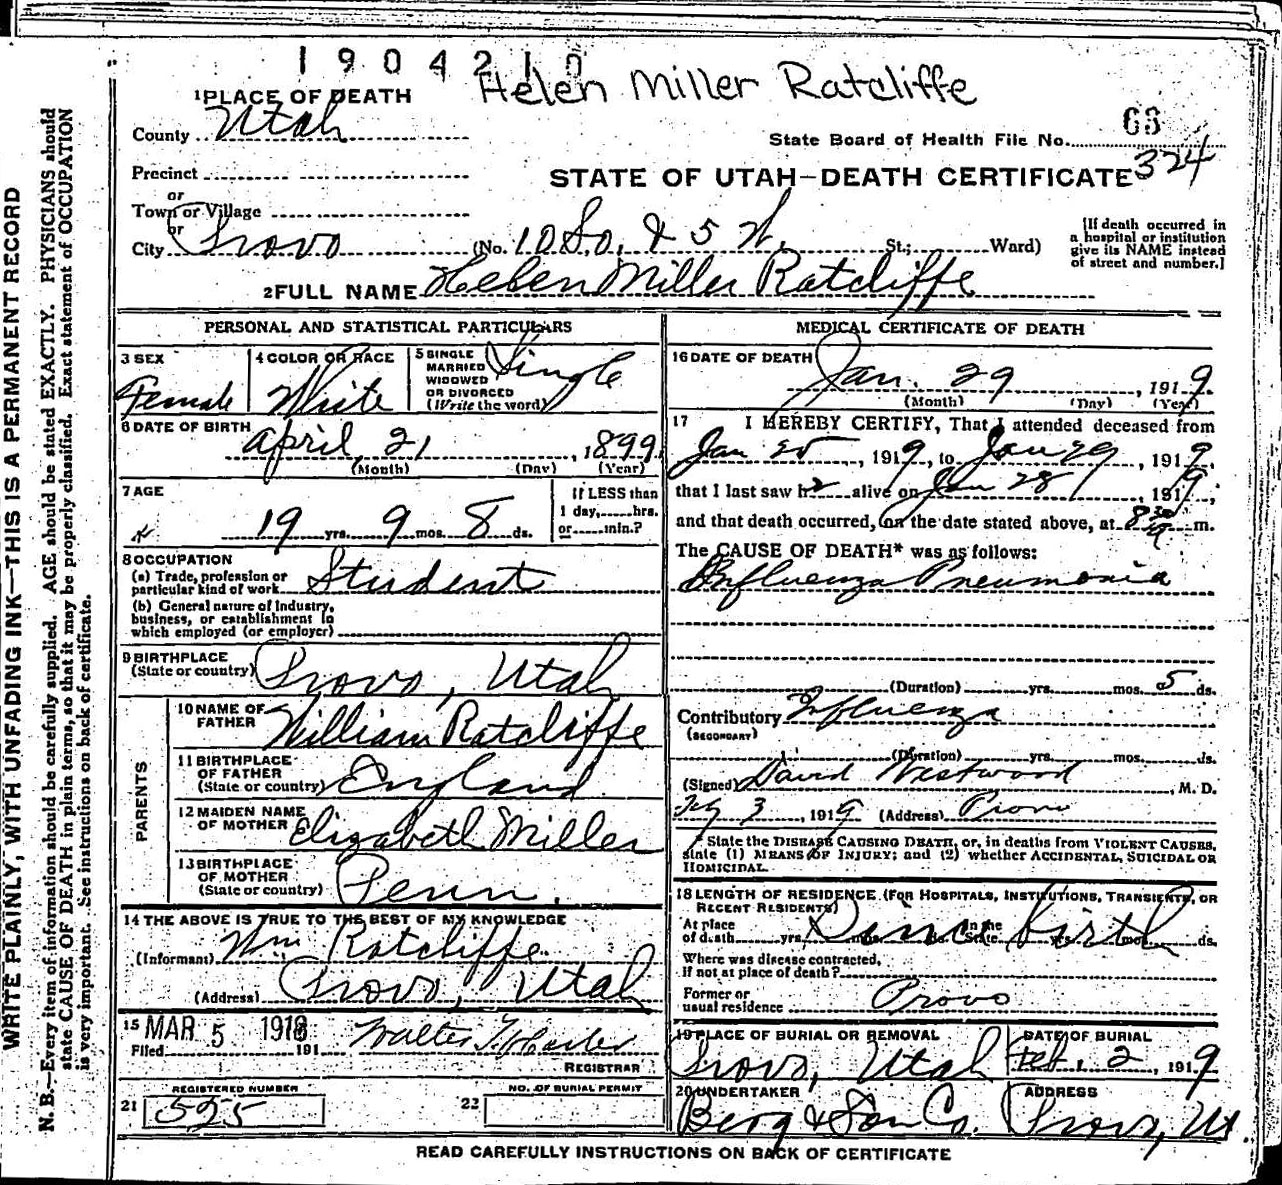 1904210
Helen Miller Ratcliffe
1 PLACE OF DEATH
County Utah
State Board of Health File No. 63
324
Precinct
or
Town or Village
or
STATE OF UTAH—DEATH CERTIFICATE
City Provo (No. 10 So. & 5 W. St.; Ward)
[If death occurred in a hospital or institution give its NAME instead of street and number.]
2 FULL NAME Helen Miller Ratcliffe
PERSONAL AND STATISTICAL PARTICULARS
3 SEX Female
4 COLOR OR RACE White
5 SINGLE MARRIED WIDOWED OR DIVORCED (Write the word) Single
6 DATE OF BIRTH April, 21, 1899
(Month) (Day) (Year)
7 AGE 19 yrs. 9 mos. 8 ds.
If LESS than 1 day, hrs. or min.?
8 OCCUPATION
(a) Trade, profession or particular kind of work Student
(b) General nature of industry, business, or establishment in which employed (or employer)
9 BIRTHPLACE (State or country) Provo, Utah
PARENTS
10 NAME OF FATHER William Ratcliffe
11 BIRTHPLACE OF FATHER (State or country) England
12 MAIDEN NAME OF MOTHER Elizabeth Miller
13 BIRTHPLACE OF MOTHER (State or country) Penn.
14 THE ABOVE IS TRUE TO THE BEST OF MY KNOWLEDGE
(Informant) Wm Ratcliffe
(Address) Provo, Utah
15 MAR 5 1918
Filed 191 Walter T.
REGISTRAR
REGISTERED NUMBER
21 525
NO. OF BURIAL PERMIT
22
MEDICAL CERTIFICATE OF DEATH
16 DATE OF DEATH Jan. 29, 1919
(Month) (Day) (Year)
17 I HEREBY CERTIFY, That I attended deceased from
Jan 25, 1919, to Jan 29, 1919,
that I last saw h alive on Jan 28, 1919,
and that death occurred, on the date stated above, at 8 m.
The CAUSE OF DEATH* was as follows:
Influenza Pneumonia
(Duration) yrs. mos. 5 ds.
Contributory Influenza
(SECONDARY)
(Duration) yrs. mos. ds.
(Signed) David Westwood, M. D.
3, 1919 (Address) Provo
* State the DISEASE CAUSING DEATH, or, in deaths from VIOLENT CAUSES, state (1) MEANS OF INJURY; and (2) whether ACCIDENTAL, SUICIDAL OR HOMICIDAL.
18 LENGTH OF RESIDENCE (FOR HOSPITALS, INSTITUTIONS, TRANSIENTS, OR RECENT RESIDENTS)
At place of death yrs. mos. ds. In the State yrs. mos. ds. Since birth
Where was disease contracted, if not at place of death?
Former or usual residence Provo
19 PLACE OF BURIAL OR REMOVAL Provo, Utah
DATE OF BURIAL Feb. 2, 1919
20 UNDERTAKER Berg & Son Co.
ADDRESS Provo, Ut.
READ CAREFULLY INSTRUCTIONS ON BACK OF CERTIFICATE
WRITE PLAINLY, WITH UNFADING INK—THIS IS A PERMANENT RECORD
N. B.—Every item of information should be carefully supplied. AGE should be stated EXACTLY. PHYSICIANS should
state CAUSE OF DEATH in plain terms, so that it may be properly classified. Exact statement of OCCUPATION
is very important. See instructions on back of certificate.